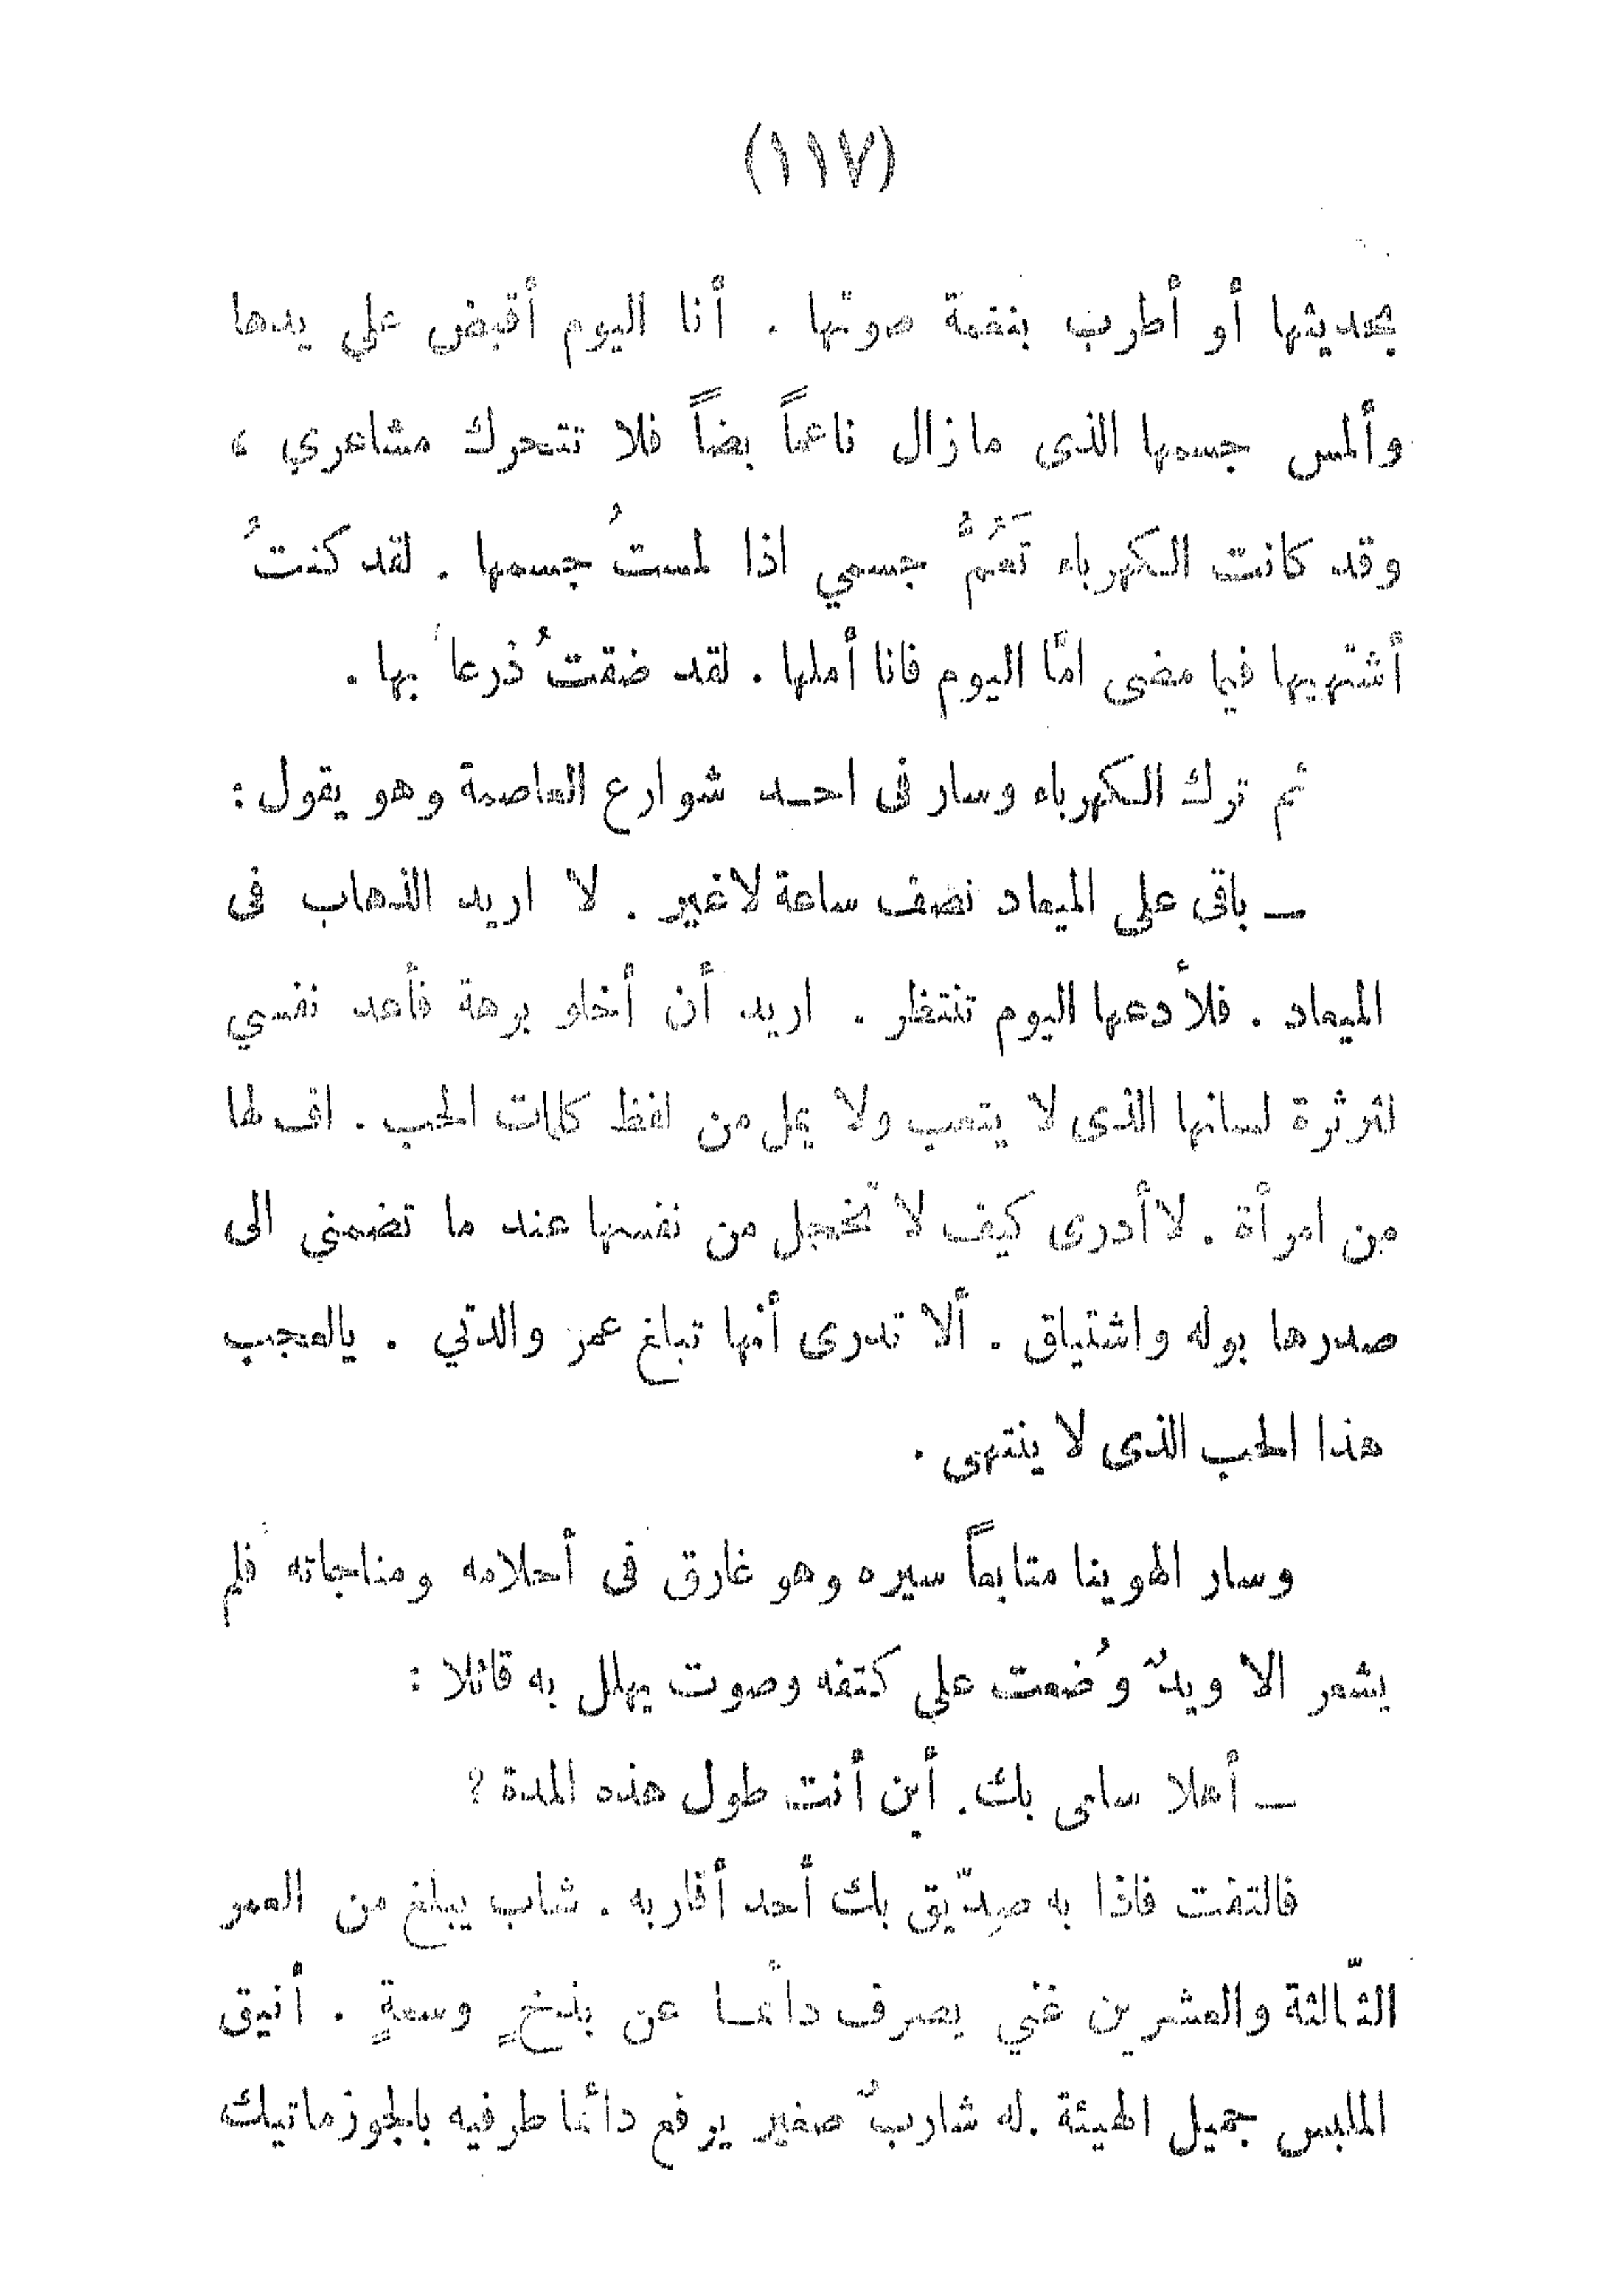 (١١٧)
بحديثها أو أطرب بنغمة صوتها . أنا اليوم أقبض علي يدها
وألمس جسمها الذى مازال ناعماً بضاً فلا تتحرك مشاعري ،
وقد كانت الكهرباء تَعُمُّ جسمي اذا لمستُ جسمها . لقد كنتُ
أشتهيها فيما مضى امّا اليوم فانا أملها . لقد ضقتُ ذرعا بها .
ثم ترك الكهرباء وسار فى احد شوارع العاصمة وهو يقول :
ــ باقى على الميعاد نصف ساعة لاغير . لا اريد الذهاب فى
الميعاد . فلأدعها اليوم تنتظر . اريد أن أخلو برهة فأعد نفسي
لثرثرة لسانها الذى لا يتعب ولا يمل من لفظ كلمات الحب . اف لها
من امرأة . لاأدرى كيف لا تخجل من نفسها عند ما تضمني الى
صدرها بوله واشتياق . ألا تدرى أنها تبلغ عمر والدتي . يالعجب
هذا الحب الذى لا ينتهى .
وسار الهوينا متابعاً سيره وهو غارق فى أحلامه ومناجاته فلم
يشعر الا ويدٌ وُضعت علي كتفه وصوت يهلل به قائلا :
ــ أهلا سامى بك. أين أنت طول هذه المدة ؟
فالتفت فاذا به صِدّيق بك أحد أقاربه . شاب يبلغ من العمر
الثّالثة والعشرين غني يصرف دائما عن بذخٍ وسعةٍ . أنيق
الملبس جميل الهيئة .له شاربٌ صغير يرفع دائما طرفيه بالجوزماتيك